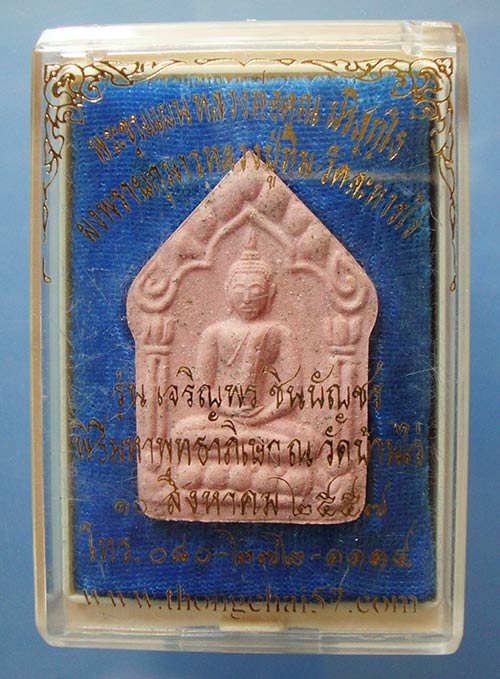 พระขุนแผน หลวงพ่อคูณ ปริสุทฺโธ
ผงพรายกุมารหลวงปู่ทิม วัดละหารไร่
รุ่น เจริญพร ชินบัญชร
พิธีมหาพุทธาภิเษก ณ วัดบ้านไร่
๑๐ สิงหาคม ๒๕๕๗
โทร. ๐๘๐-๖๗๒-๑๑๑๔
www.thongchai57.com